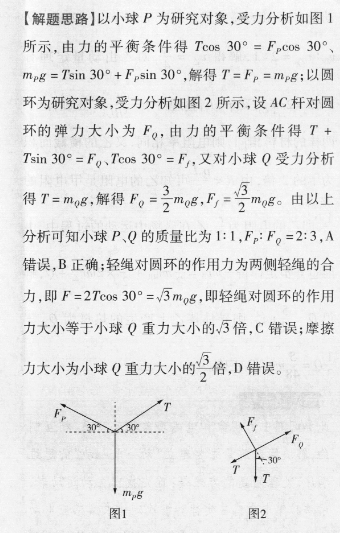 【解题思路】以小球 P 为研究对象,受力分析如图 1
所示,由力的平衡条件得 Tcos 30° = F_P cos 30°、
m_P g = Tsin 30° + F_P sin 30°,解得 T = F_P = m_P g;以圆
环为研究对象,受力分析如图 2 所示,设 AC 杆对圆
环的弹力大小为 F_Q,由力的平衡条件得 T +
Tsin 30° = F_Q、Tcos 30° = F_f,又对小球 Q 受力分析
得 T = m_Q g,解得 F_Q = 3/2 m_Q g, F_f = √3/2 m_Q g。由以上
分析可知小球 P、Q 的质量比为 1:1,F_P:F_Q = 2:3,A
错误,B 正确;轻绳对圆环的作用力为两侧轻绳的合
力,即 F = 2Tcos 30° = √3 m_Q g,即轻绳对圆环的作用
力大小等于小球 Q 重力大小的√3倍,C 错误;摩擦
力大小为小球 Q 重力大小的√3/2倍,D 错误。
F_P
T
30°
30°
m_P g
图1
F_f
F_Q
30°
T
T
图2